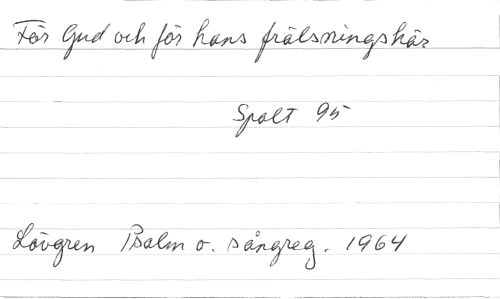 För Gud och för hans frälsningshär
Spalt 95
Lövgren Psalm o. sångreg. 1964